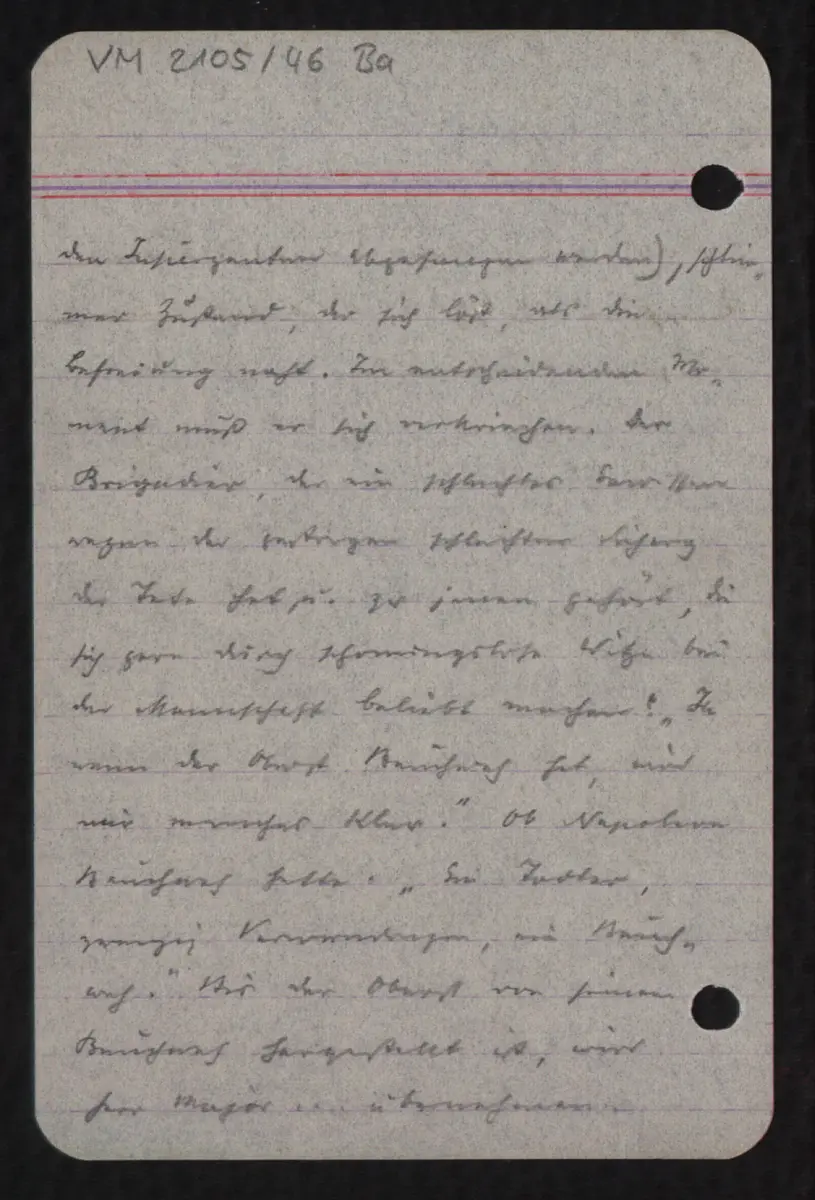 VM 2105/46 Ba
den Insurgenten abgefangen werden), schlim„
mer Zustand, der sich löst, als die
Befreiung naht. Im entscheidenden Mo„
ment muß er sich verkriechen. Der
Brigadier, der ein schlechtes Gewissen
wegen der gestrigen schlechten Führung
der Tete hat u. zu jenen gehört, die
sich gern durch schonungslose Witze bei
der Mannschaft beliebt machen: „Ja
wenn der Oberst Bauchweh hat, wird
mir manches klar.“ Ob Napoleon
Bauchweh hatte. „Ein Tadler,
zwanzig Verwundungen, nie Bauch„
weh.“ Bis der Oberst von seinem
Bauchweh hergestellt ist, wird
Herr Major ... übernehmen.